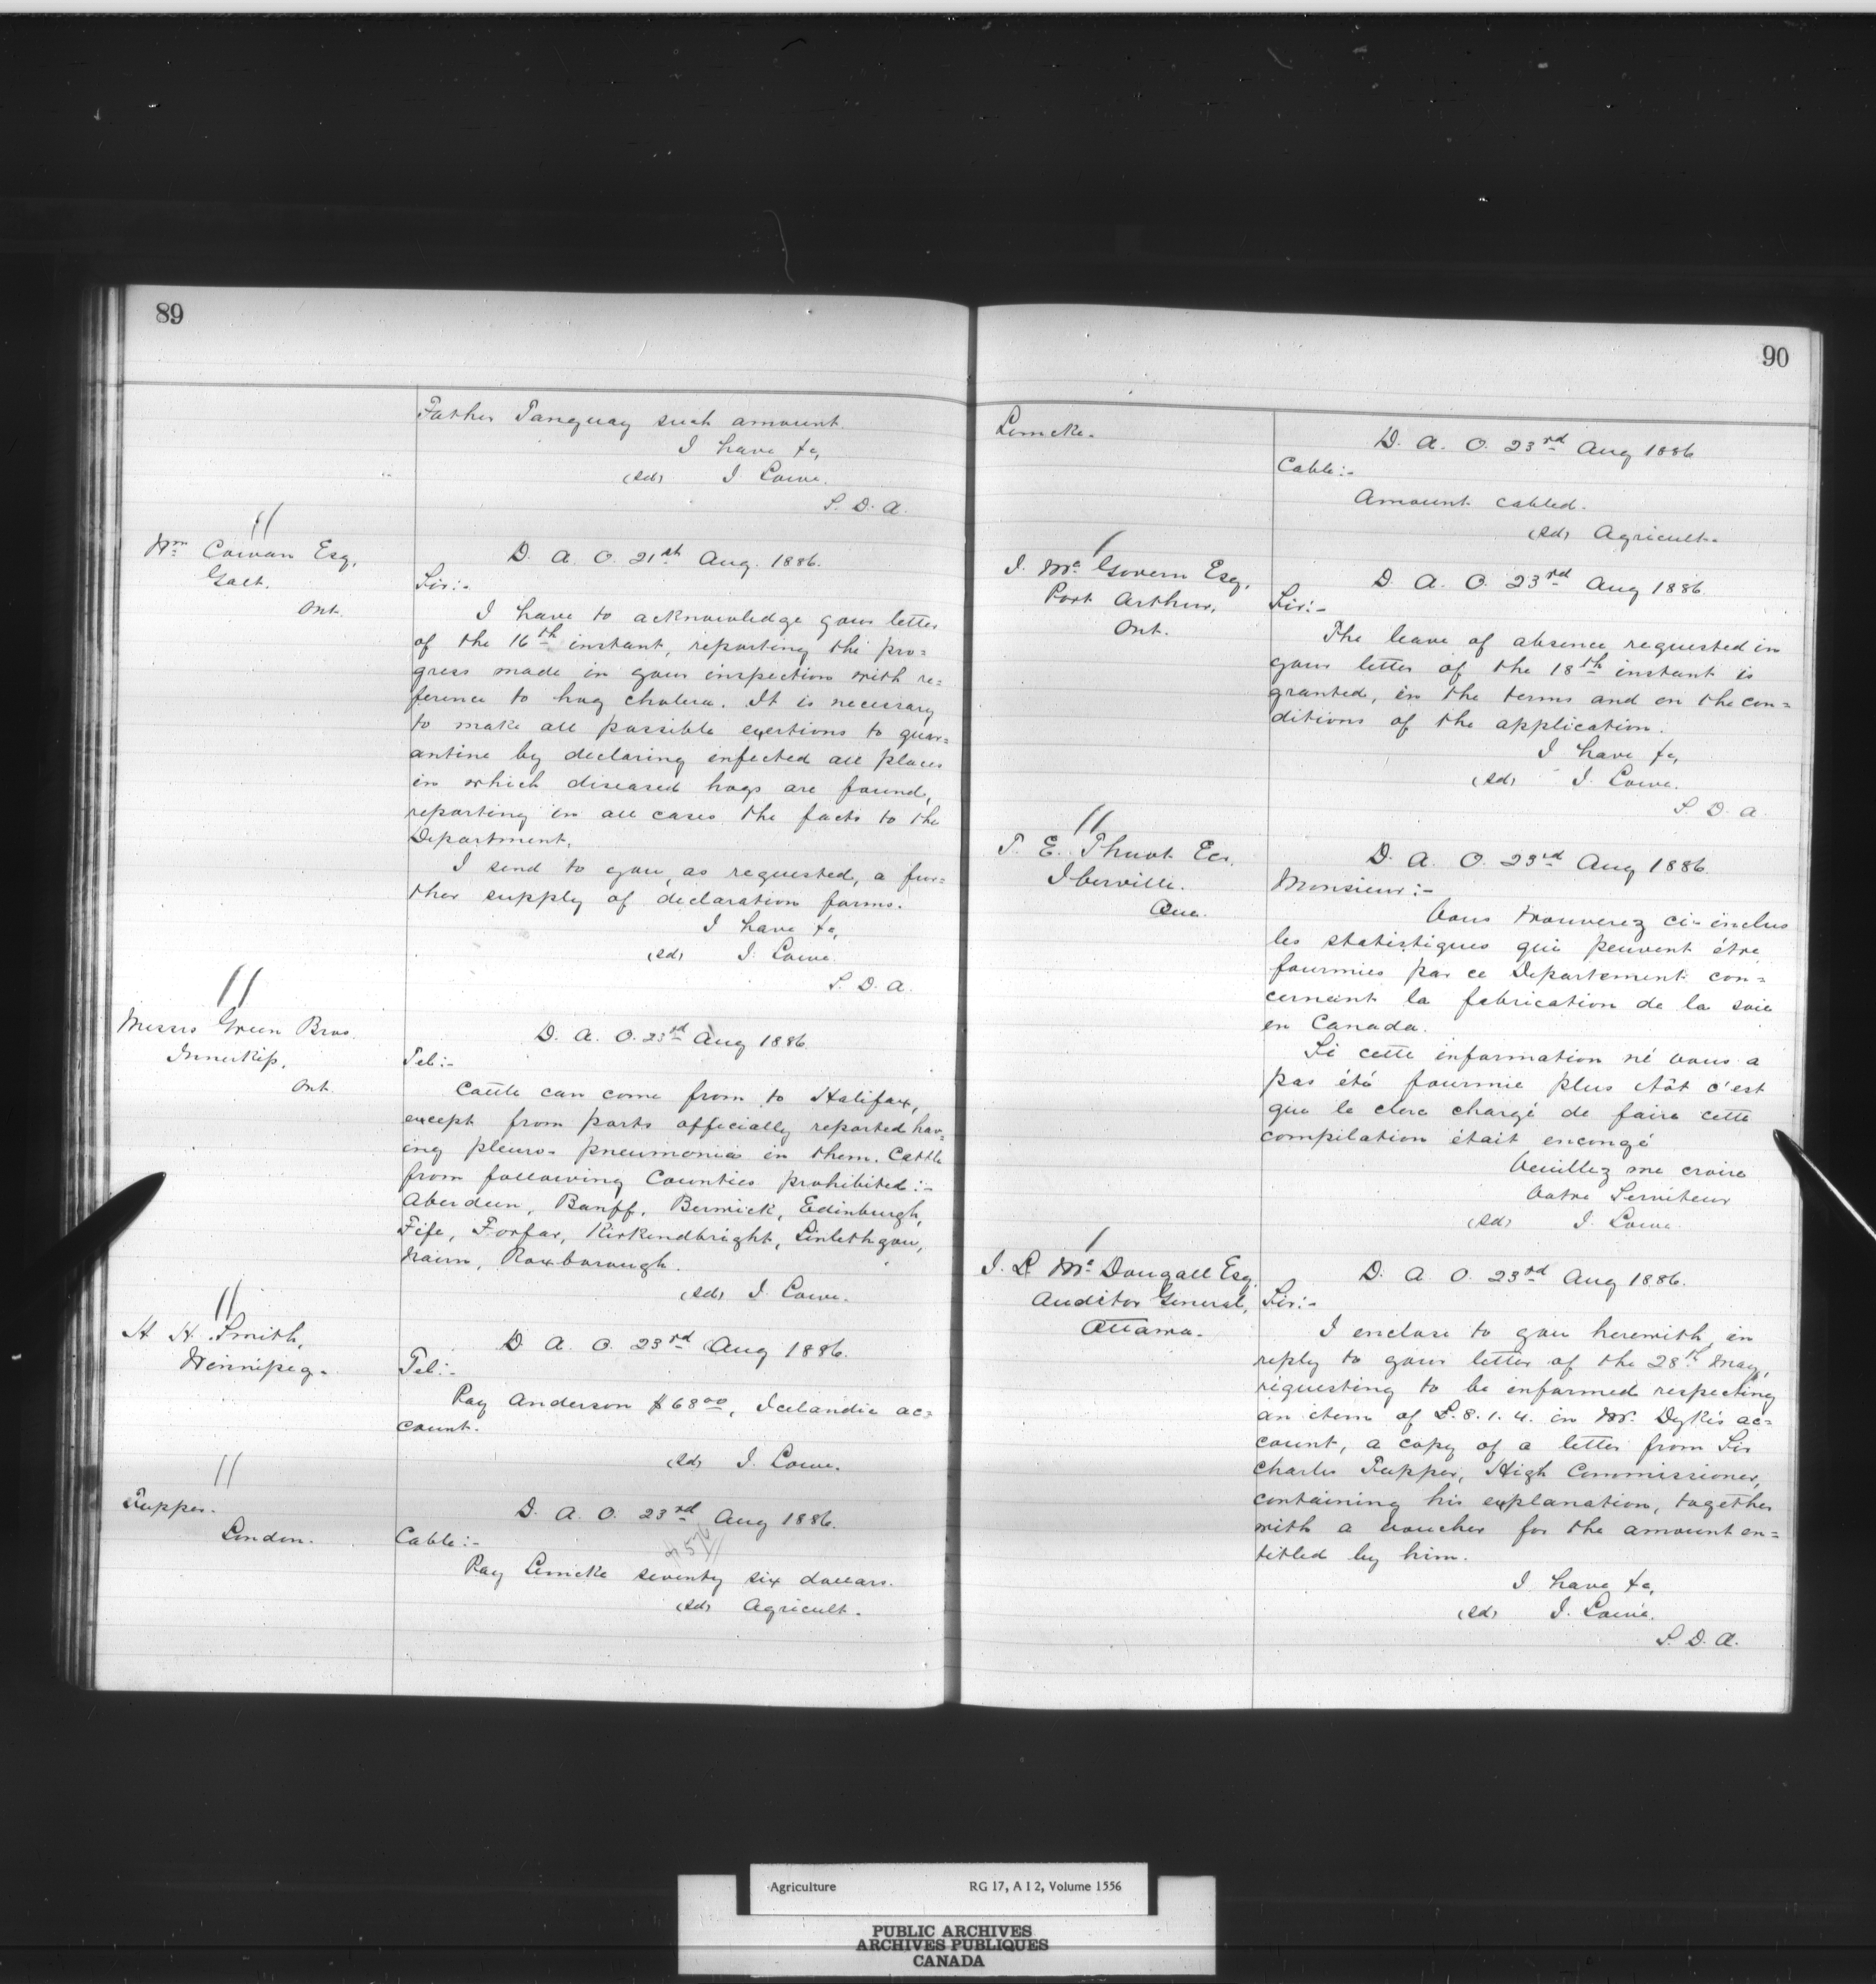 89
Father Tanguay such amount.
I have &c,
(sd) J. Lowe.
S. D. A.
Wm Cowan Esq,
Galt.
Ont.
D. A. O. 21st Aug. 1886.
Sir:-
I have to acknowledge your letter
of the 16th instant, reporting the pro=
gress made in your inspection with re=
ference to hog cholera. It is necessary
to make all possible exertions to quar=
antine by declaring infected all places
in which diseased hogs are found,
reporting in all cases the facts to the
Department.
I send to you, as requested, a fur=
ther supply of declaration forms.
I have &c,
(sd) J. Lowe
S. D. A.
Messrs Green Bros.
Innerkip,
Ont.
D. A. O. 23rd Aug 1886.
Tel:-
Cattle can come from to Halifax,
except from parts officially reported hav=
ing pleuro-pneumonia in them. Cattle
from following Counties prohibited:-
Aberdeen, Banff, Berwick, Edinburgh,
Fife, Forfar, Kirkendbright, Linlethgow,
Nairn, Roxborough.
(sd) J. Lowe.
H. H. Smith,
Winnipeg.
D. A. O. 23rd Aug 1886.
Tel:-
Pay Anderson $68.00, Icelandic ac=
count.
(sd) J. Lowe.
Tupper.
London.
D. A. O. 23rd Aug 1886.
Cable:-
Pay Lemcke seventy six dollars.
(sd) Agricult.
90
Lemcke.
D. A. O. 23rd Aug 1886
Cable:-
Amount cabled.
(sd) Agricult.
J. McGovern Esq,
Port Arthur,
Ont.
D. A. O. 23rd Aug 1886.
Sir:-
The leave of absence requested in
your letter of the 18th instant is
granted, in the terms and on the con=
ditions of the application.
I have &c,
(sd) J. Lowe.
S. D. A.
T. E. Thuot Ecr.
Iberville.
Que.
D. A. O. 23rd Aug 1886.
Monsieur:-
Vous trouverez ci-inclus
les statistiques qui peuvent être
fournies par ce Departement con=
cernant la fabrication de la soie
en Canada.
Si cette information né vous a
pas été fournie plus tôt c'est
que le clerc chargé de faire cette
compilation était encongé
Veuillez me croire
Votre Serviteur
(sd) J. Lowe.
J. L. McDougall Esq.
Auditor General,
Ottawa.
D. A. O. 23rd Aug 1886.
Sir:-
I enclose to you herewith, in
reply to your letter of the 28th May,
requesting to be informed respecting
an item of £.8.1.4. in Mr. Dyke's ac=
count, a copy of a letter from Sir
Charles Tupper, High Commissioner,
containing his explanation, together
with a voucher for the amount en=
titled by him.
I have &c,
(sd) J. Lowe.
S. D. A.
Agriculture RG 17, A I 2, Volume 1556
PUBLIC ARCHIVES
ARCHIVES PUBLIQUES
CANADA